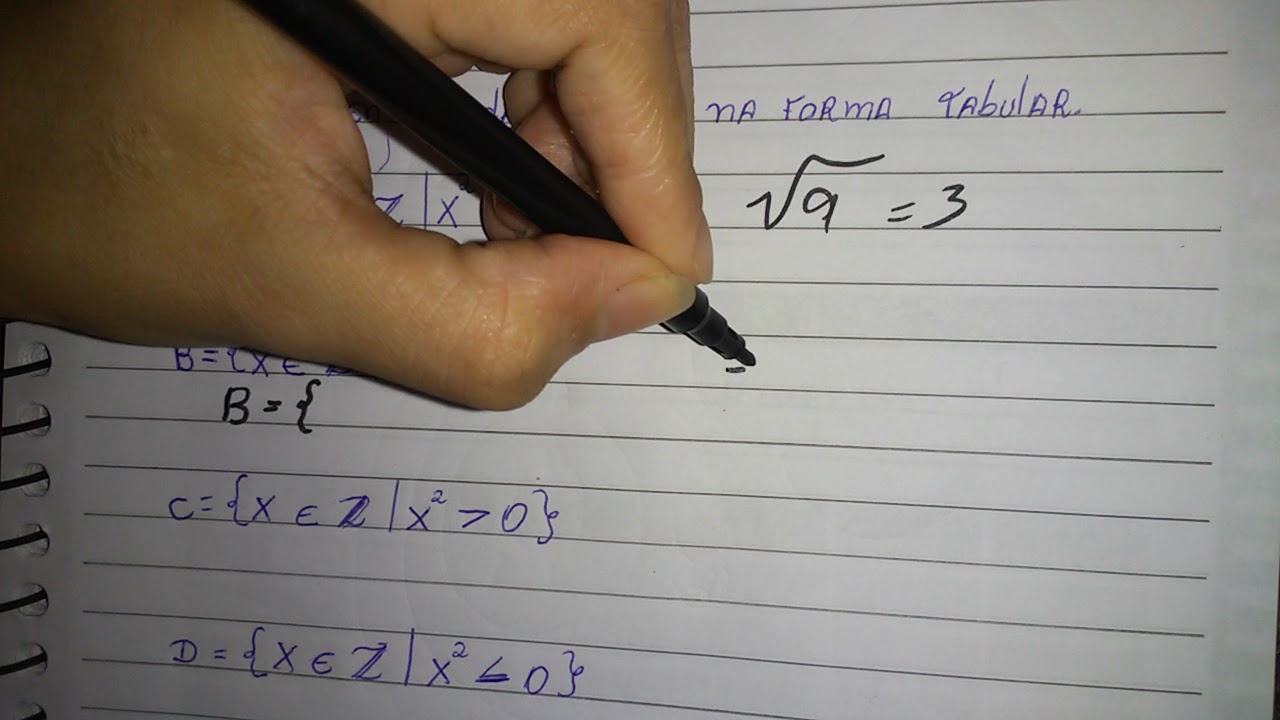 NA FORMA TABULAR.
Z | x²
√9 = 3
B = {X ∈
B = {
C = {X ∈ Z | X² > 0}
D = {X ∈ Z | X² < 0}